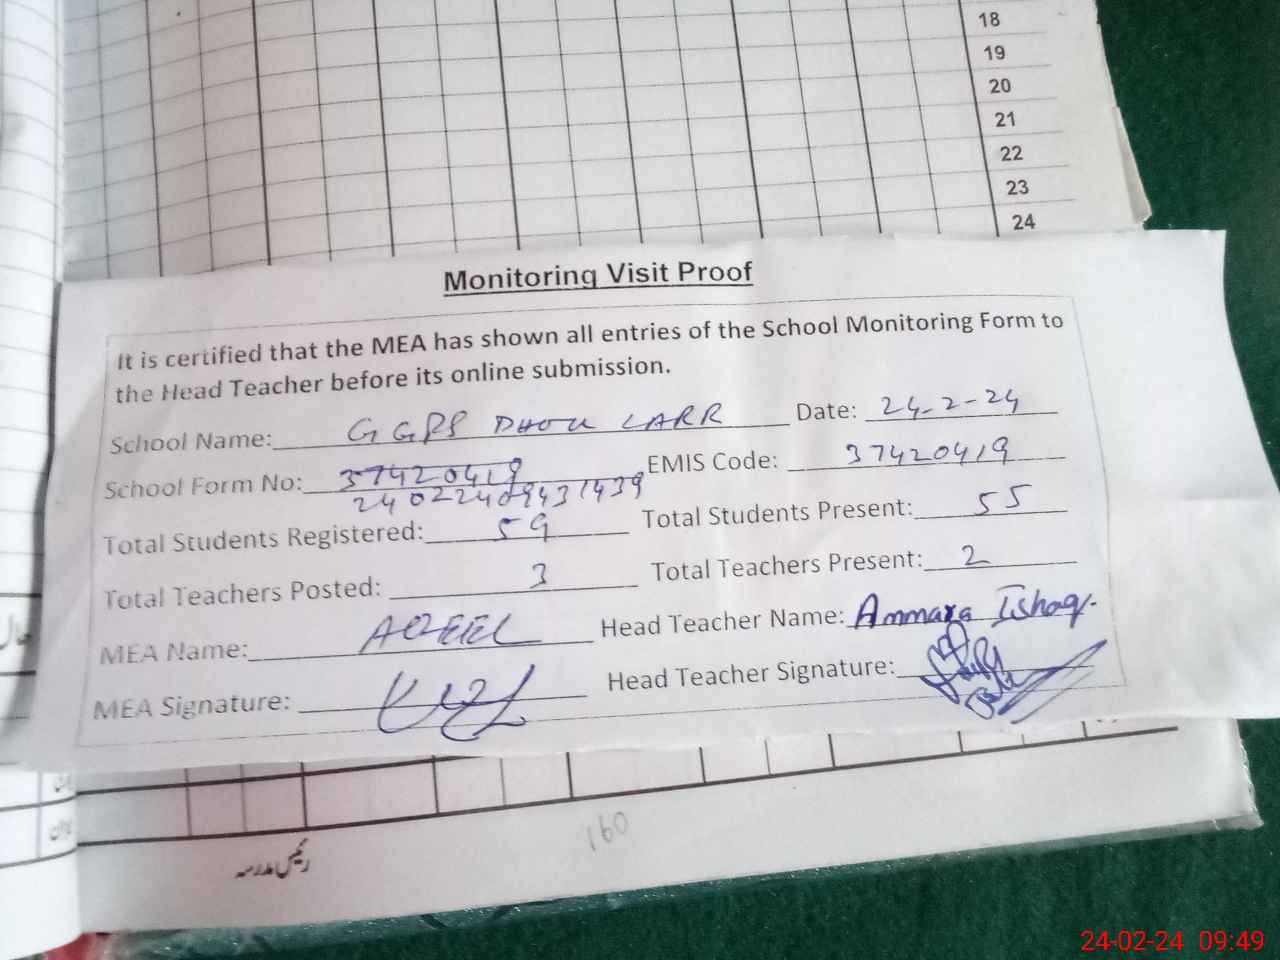 18
19
20
21
22
23
24
Monitoring Visit Proof
It is certified that the MEA has shown all entries of the School Monitoring Form to
the Head Teacher before its online submission.
School Name: GGPS DHOU LARR Date: 24-2-24
School Form No: 37420419 EMIS Code: 37420419
24022409431439
Total Students Registered: 59 Total Students Present: 55
Total Teachers Posted: 3 Total Teachers Present: 2
MEA Name: AQEEL Head Teacher Name: Ammara Ishaq.
MEA Signature: Head Teacher Signature:
160
رئیس مدرسہ
24-02-24 09:49